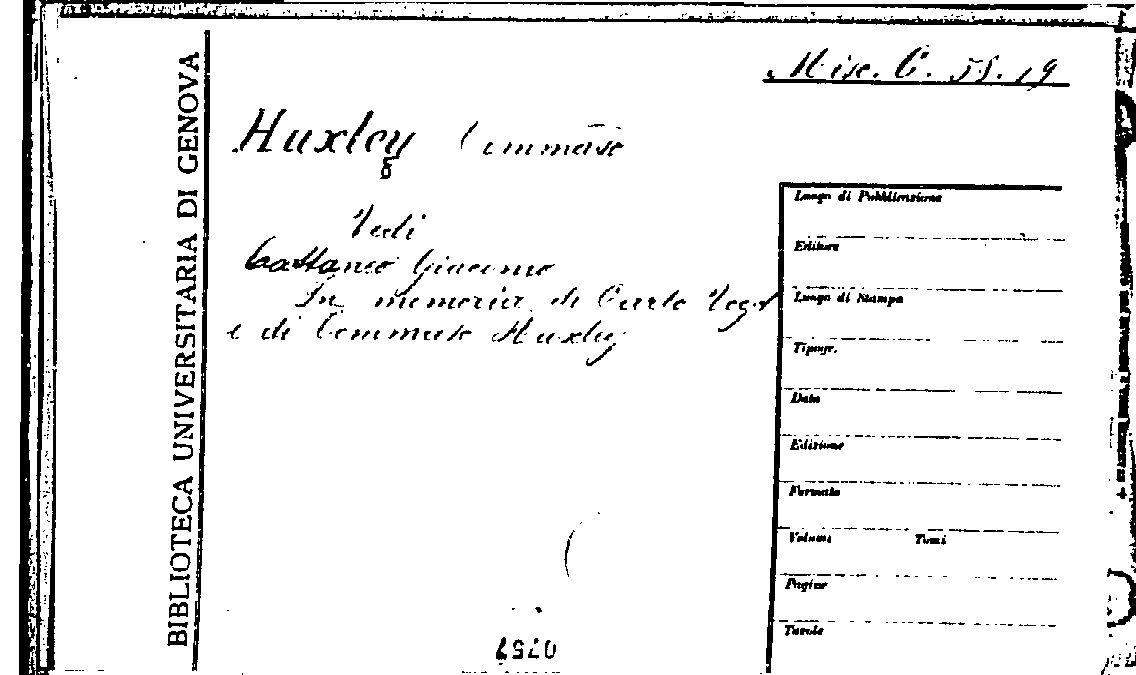 BIBLIOTECA UNIVERSITARIA DI GENOVA
Misc. C. 55. 19
Huxley Tommaso
Vedi
Cattaneo Giacomo
In memoria di Carlo Vogt
e di Tommaso Huxley
Luogo di Pubblicazione
Editore
Luogo di Stampa
Tipogr.
Data
Edizione
Formato
Volumi Tomi
Pagine
Tavole